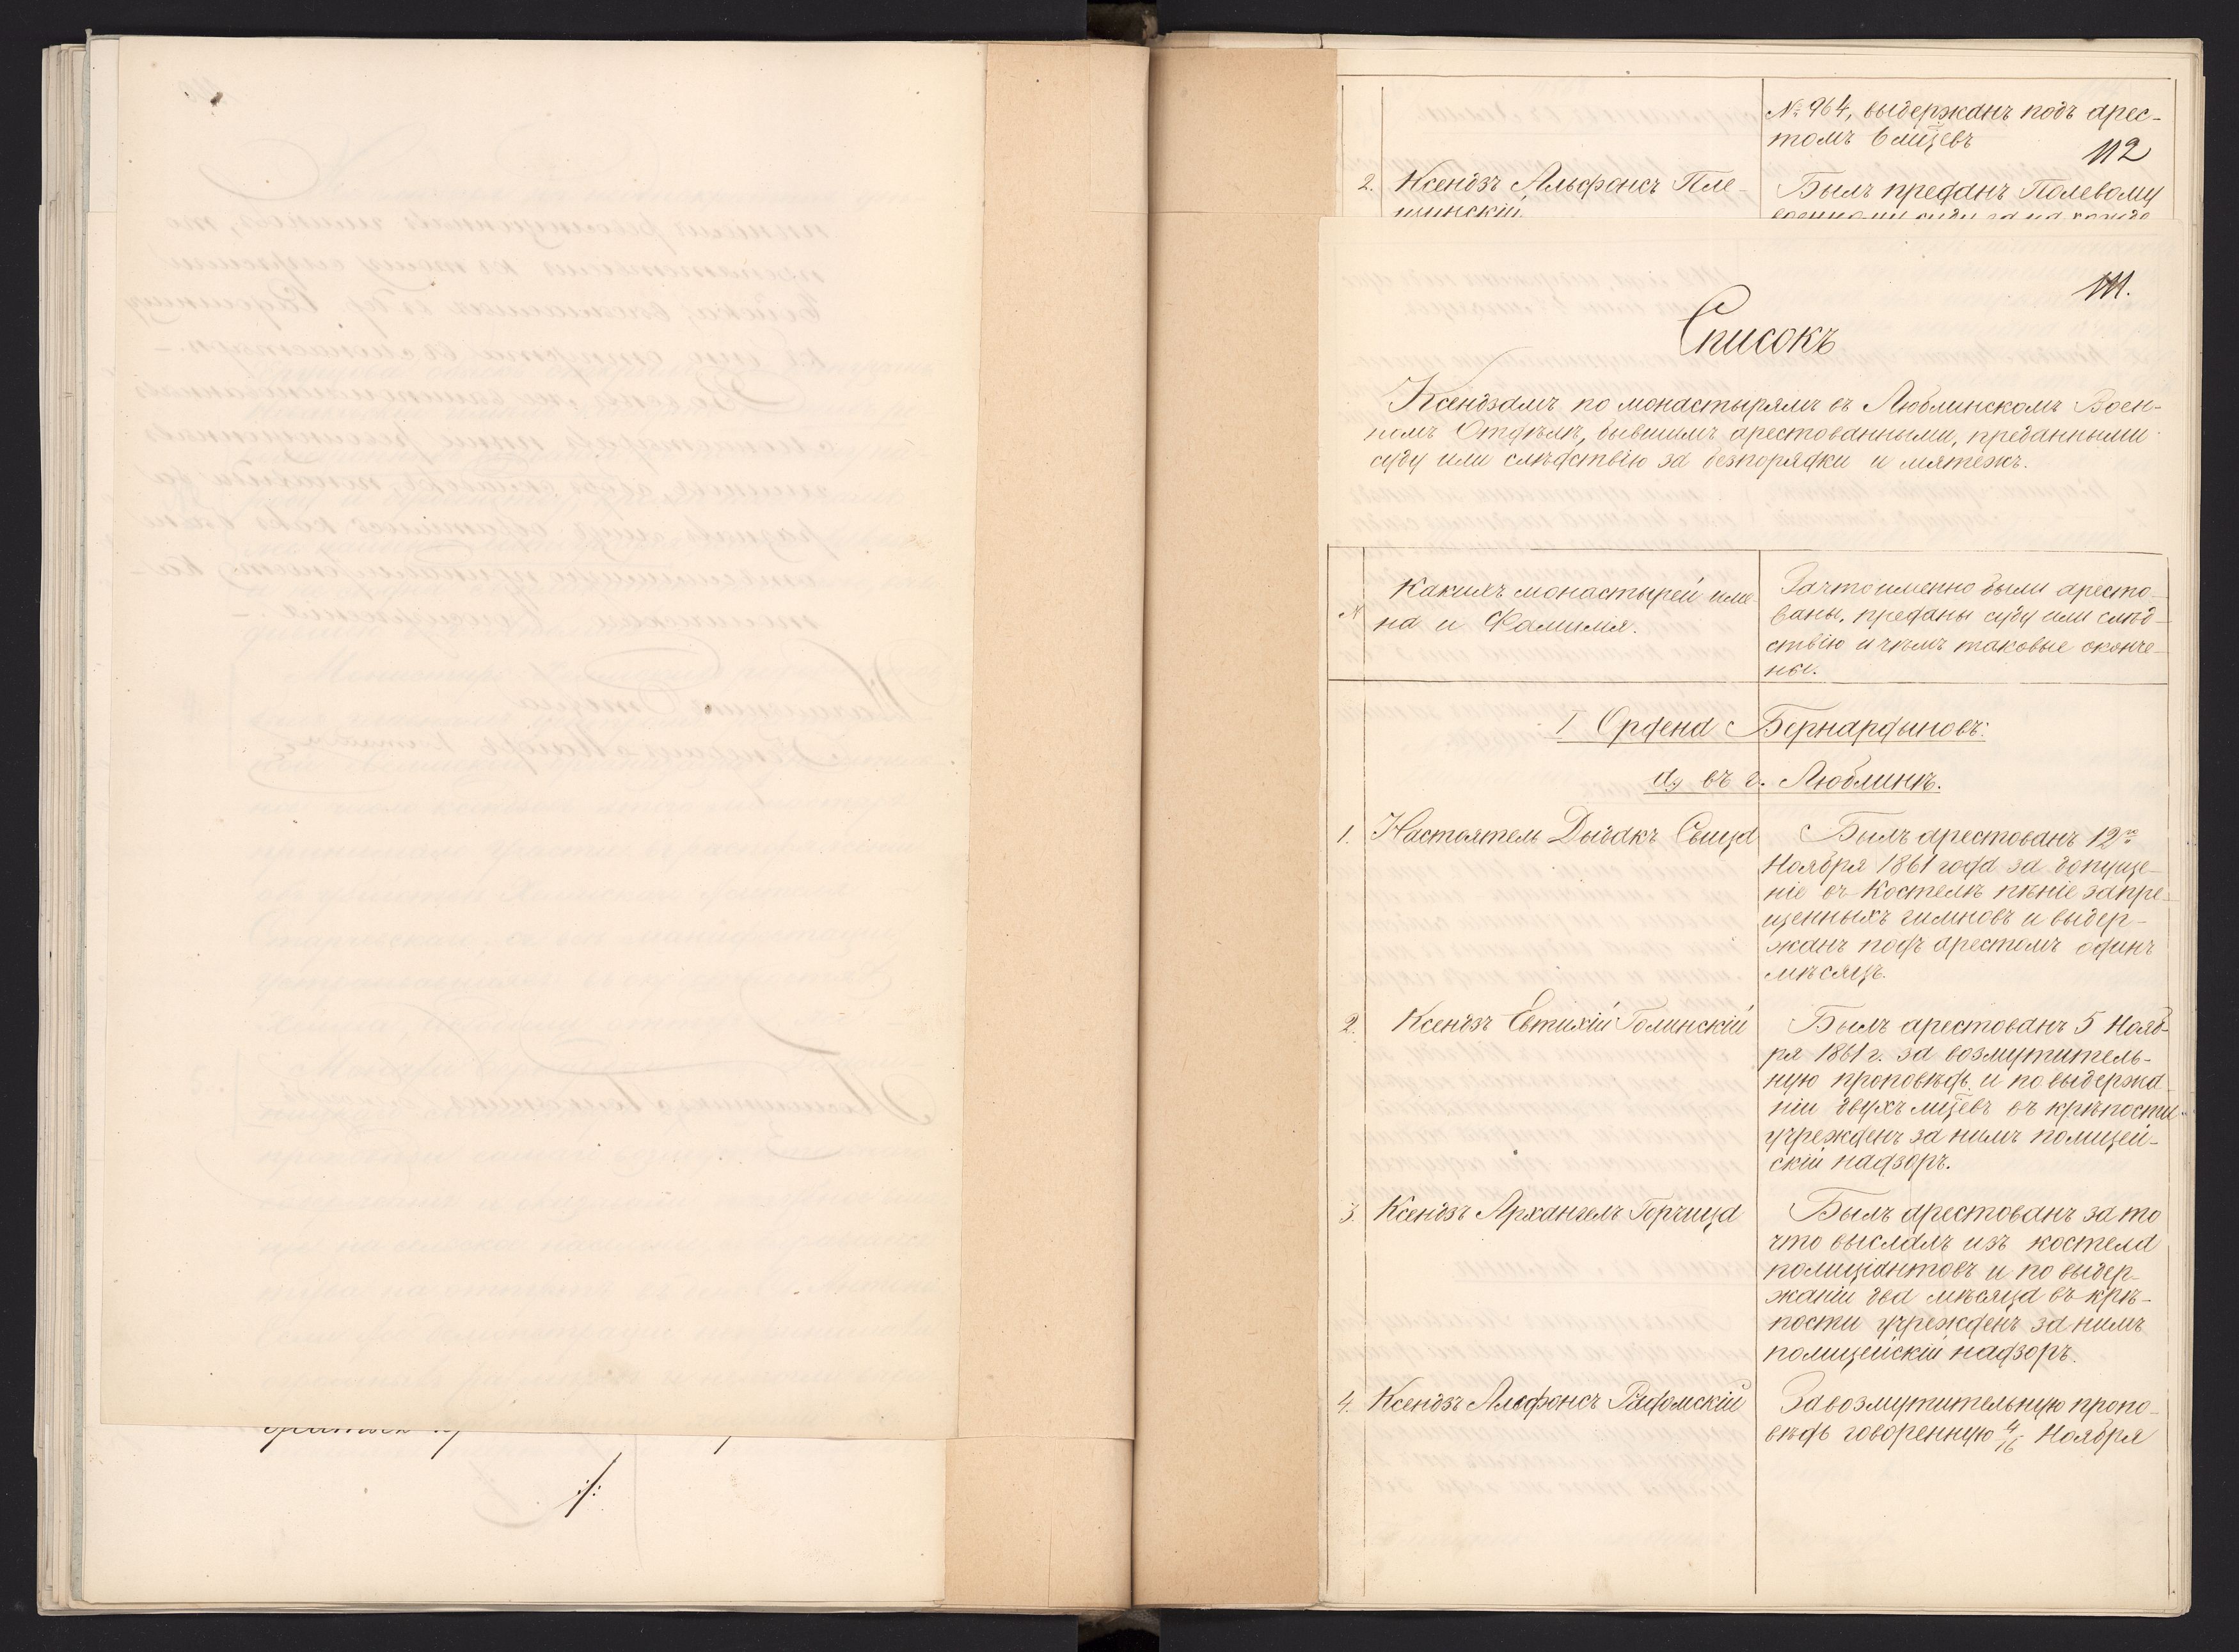 № 964, выдержанъ подъ арес-
томъ 6 мцевъ
112
2. Ксендзъ Альфонсъ Пле-
Былъ преданъ Полевому
111.
Списокъ
Ксендзамъ по монастырямъ въ Люблинскомъ Воен-
номъ Отделѣ, бывшимъ арестованными, преданными
суду или слѣдствію за безпорядки и мятежъ.
№
Какихъ монастырей име-
на и Фамилія.
За что именно были аресто-
ваны, преданы суду или слѣд-
ствію и чѣмъ таковые оконче-
ны.
I Ордена Бернардыновъ:
а, въ г. Люблинѣ.
1. Настоятель Дыдакъ
Былъ арестованъ 12го
Ноября 1861 года за допуще-
ніе въ Костелѣ пѣніе запре-
щенныхъ гимновъ и выдер-
жанъ подъ арестомъ одинъ
мѣсяцъ.
2. Ксендзъ Евтихій Голинскій
Былъ арестованъ 5 Нояб-
ря 1861 г. за возмутитель-
ную проповѣдь и по выдержа-
ніи двухъ мцевъ въ крѣпости
учрежденъ за нимъ полицей-
скій надзоръ.
3. Ксендзъ Архангелъ Горчица
Былъ арестованъ за то
что выслалъ изъ костела
полиціантовъ и по выдер-
жаніи два мѣсяца въ крѣ-
пости учрежденъ за нимъ
полицейскій надзоръ.
4. Ксендзъ Альфонсъ Радомскій
За возмутительную пропо-
вѣдь говоренную 4/16 Ноября